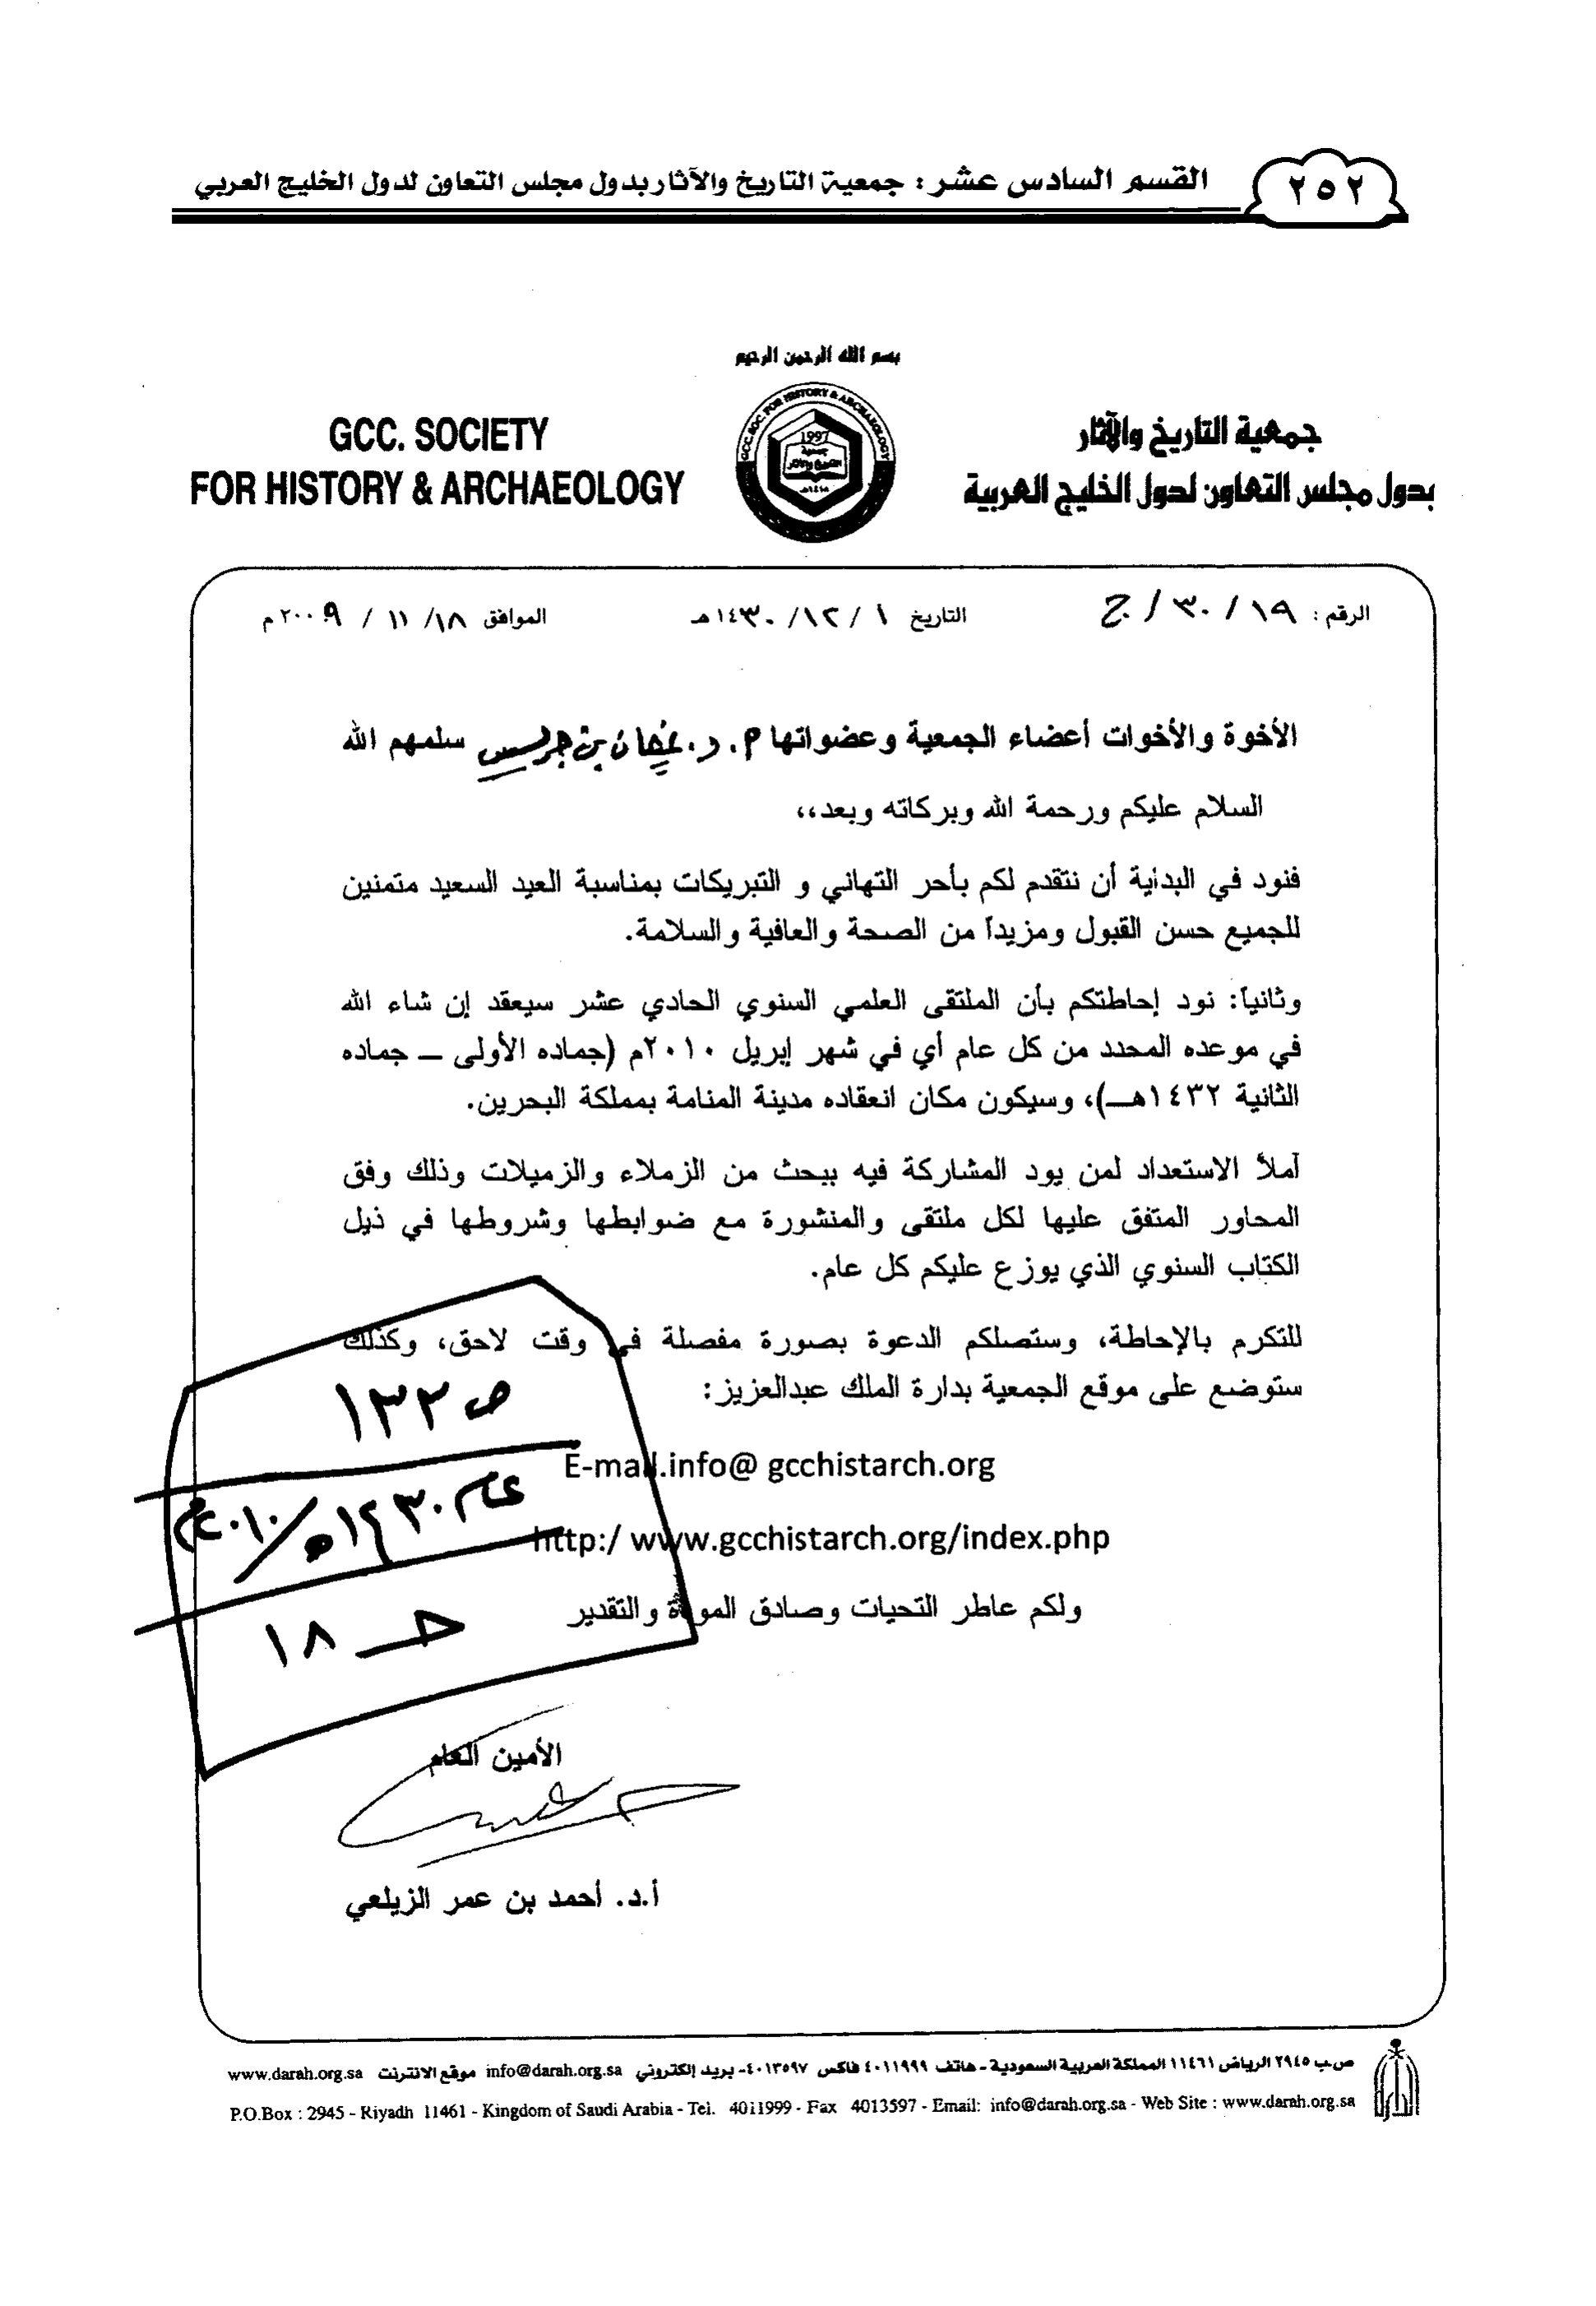 ٢٥٢
القسم السادس عشر : جمعية التاريخ والآثار بدول مجلس التعاون لدول الخليج العربي
بسم الله الرحمن الرحيم
جمعية التاريخ والآثار
بدول مجلس التعاون لدول الخليج العربية
GCC. SOCIETY
FOR HISTORY & ARCHAEOLOGY
GCC. SOC. FOR HISTORY & ARCHAEOLOGY
1997
الرقم : ١٩ / ٣٠ / ج
التاريخ ١ / ١٢ / ١٤٣٠هـ
الموافق ١٨ / ١١ / ٢٠٠٩م
الأخوة والأخوات أعضاء الجمعية وعضواتها م. د. غيثان بن جريس سلمهم الله
السلام عليكم ورحمة الله وبركاته وبعد،،
فنود في البداية أن نتقدم لكم بأحر التهاني و التبريكات بمناسبة العيد السعيد متمنين
للجميع حسن القبول ومزيداً من الصحة والعافية والسلامة.
وثانياً: نود إحاطتكم بأن الملتقى العلمي السنوي الحادي عشر سيعقد إن شاء الله
في موعده المحدد من كل عام أي في شهر إبريل ٢٠١٠م (جماده الأولى – جماده
الثانية ١٤٣٢هـ)، وسيكون مكان انعقاده مدينة المنامة بمملكة البحرين.
آملاً الاستعداد لمن يود المشاركة فيه ببحث من الزملاء والزميلات وذلك وفق
المحاور المتفق عليها لكل ملتقى والمنشورة مع ضوابطها وشروطها في ذيل
الكتاب السنوي الذي يوزع عليكم كل عام.
للتكرم بالإحاطة، وستصلكم الدعوة بصورة مفصلة في وقت لاحق، وكذلك
ستوضع على موقع الجمعية بدارة الملك عبدالعزيز:
E-mail.info@ gcchistarch.org
http:/ www.gcchistarch.org/index.php
ولكم عاطر التحيات وصادق المودة والتقدير
ص ١٣٣
عام ١٤٣٠هـ/٢٠١٠م
حـ ١٨
الأمين العام
أ.د. أحمد بن عمر الزيلعي
ص.ب ٢٩٤٥ الرياض ١١٤٦١ المملكة العربية السعودية - هاتف ٤٠١١٩٩٩ فاكس ٤٠١٣٥٩٧- بريد إلكتروني info@darah.org.sa موقع الانترنت www.darah.org.sa
P.O.Box : 2945 - Riyadh 11461 - Kingdom of Saudi Arabia - Tel. 4011999 - Fax 4013597 - Email: info@darah.org.sa - Web Site : www.darah.org.sa